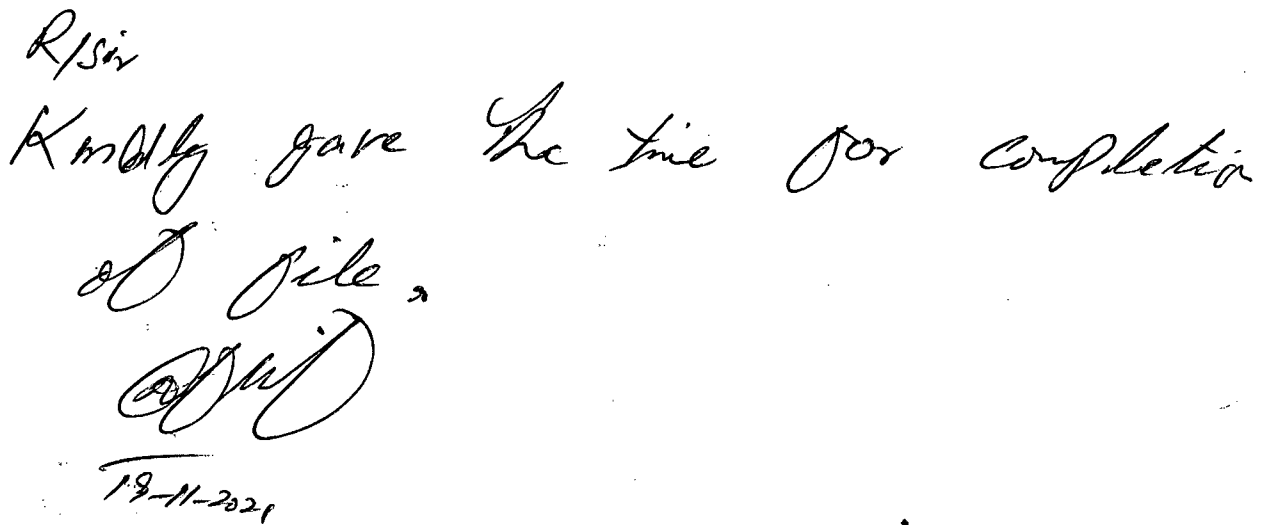 R/Sir
Kindly gave the time for completion
of file.
18-11-2021